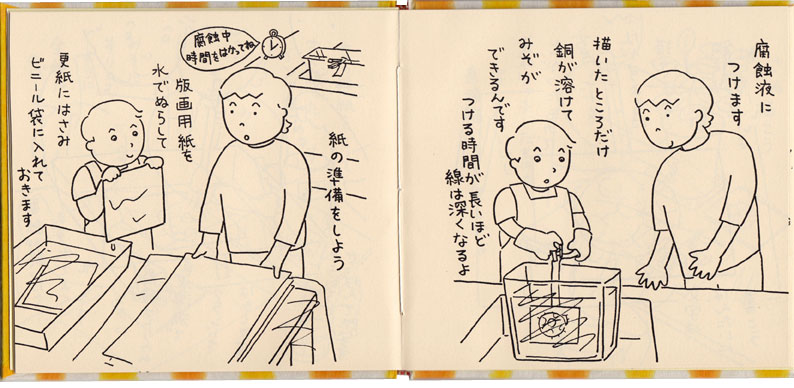 腐蝕液に
つけます
描いたところだけ
銅が溶けて
みぞが
できるんです
つける時間が長いほど
線は深くなるよ
腐蝕中
時間をはかってね
紙の準備をしよう
版画用紙を
水でぬらして
更紙にはさみ
ビニール袋に入れて
おきます